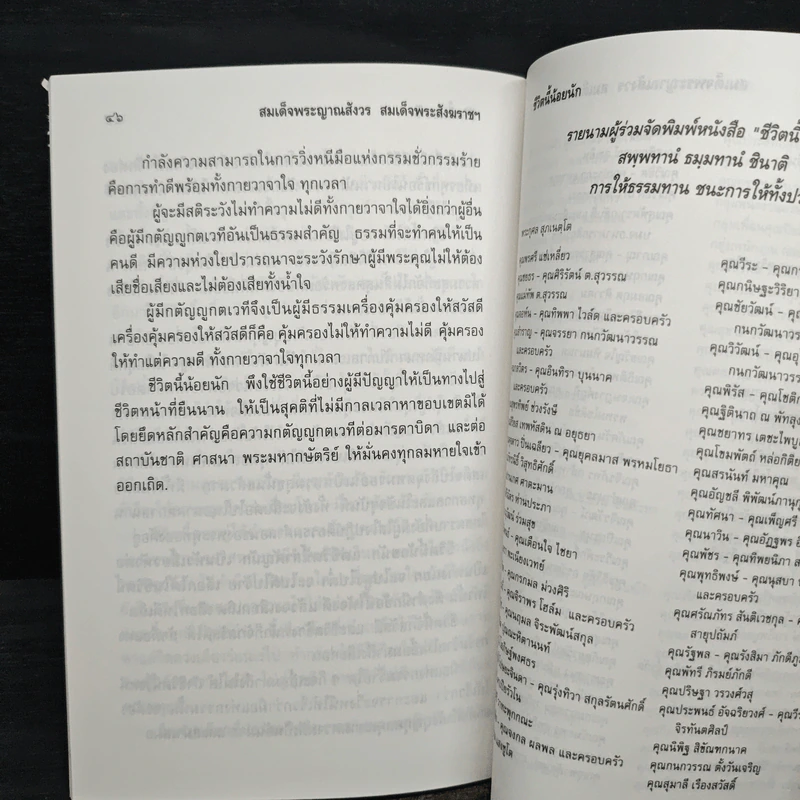 ๔๖
สมเด็จพระญาณสังวร สมเด็จพระสังฆราชฯ
กำลังความสามารถในการวิ่งหนีมือแห่งกรรมชั่วกรรมร้าย
คือการทำดีพร้อมทั้งกายวาจาใจ ทุกเวลา
ผู้จะมีสติระวังไม่ทำความไม่ดีทั้งกายวาจาใจได้ยิ่งกว่าผู้อื่น
คือผู้มีกตัญญูกตเวทีอันเป็นธรรมสำคัญ ธรรมที่จะทำคนให้เป็น
คนดี มีความห่วงใยปรารถนาจะระวังรักษาผู้มีพระคุณไม่ให้ต้อง
เสียชื่อเสียงและไม่ต้องเสียทั้งน้ำใจ
ผู้มีกตัญญูกตเวทีจึงเป็นผู้มีธรรมเครื่องคุ้มครองให้สวัสดี
เครื่องคุ้มครองให้สวัสดีก็คือ คุ้มครองไม่ให้ทำความไม่ดี คุ้มครอง
ให้ทำแต่ความดี ทั้งกายวาจาใจทุกเวลา
ชีวิตนี้น้อยนัก พึงใช้ชีวิตนี้อย่างผู้มีปัญญาให้เป็นทางไปสู่
ชีวิตหน้าที่ยืนนาน ให้เป็นสุคติที่ไม่มีกาลเวลาหาขอบเขตมิได้
โดยยึดหลักสำคัญคือความกตัญญูกตเวทีต่อมารดาบิดา และต่อ
สถาบันชาติ ศาสนา พระมหากษัตริย์ ให้มั่นคงทุกลมหายใจเข้า
ออกเถิด.
ชีวิตนี้น้อยนัก
รายนามผู้ร่วมจัดพิมพ์หนังสือ "ชีวิตนี้
สพฺพทานํ ธมฺมทานํ ชินาติ
การให้ธรรมทาน ชนะการให้ทั้งปว
พระกุศล สุภเนตฺโต
แซ่เหลี่ยว
คุณศิริรัตน์ ต.สุวรรณ
ต.สุวรรณ
คุณทิพพา ไวล์ด และครอบครัว
คุณจรรยา กนกวัฒนาวรรณ
และครอบครัว
คุณอินทิรา บุนนาค
และครอบครัว
ช่วงรังษี
เทพหัสดิน ณ อยุธยา
ปิ่นเฉลียว - คุณยุคลมาส พรหมโยธา
วิสุทธิศักดิ์
ศาตะมาน
ท่านประภา
ร่วมสุข
คุณเตือนใจ ไชยา
คุณกรกมล ม่วงศิริ
คุณจิราพร โฮล์ม และครอบครัว
คุณนฤมล จิระพัฒน์สกุล
คุณรุ่งทิวา สกุลรัตนศักดิ์
คุณจงกล ผลพล และครอบครัว
คุณวีระ - คุณก
คุณกนิษฐะวิริยา
คุณชัยวัฒน์ - คุณ
กนกวัฒนาวรรณ
คุณวิวัฒน์ - คุณอุ
กนกวัฒนาวรรณ
คุณพิรัส - คุณโชติ
คุณฐิตินาถ ณ พัทลุง
คุณชยาทร เตชะไพบู
คุณโฆมพัตถ์ หล่อกิติย
คุณสรนันท์ มหาคุณ
คุณอัญชลี พิพัฒน์ภานุกู
คุณทัศนา - คุณเพ็ญศรี
คุณนาวิน - คุณอัฏฐพร อิ
คุณพัชร - คุณทิพยนิภา ส
คุณพุทธิพงษ์ - คุณนุสบา
และครอบครัว
คุณศรัณภัทร สันติเวชกุล - คุ
สายุปถัมภ์
คุณรัฐพล - คุณรังสิมา ภักดีภู
คุณพัทรี ภิรมย์ภักดี
คุณปริษฐา วรวงศ์วสุ
คุณประพนธ์ อัจฉริยวงศ์ - คุณวี
จิรทันตศิลป์
คุณนิพิฐ สิขัณฑกนาค
คุณกนกวรรณ ตั้งวันเจริญ
คุณสุมาลี เรืองสวัสดิ์